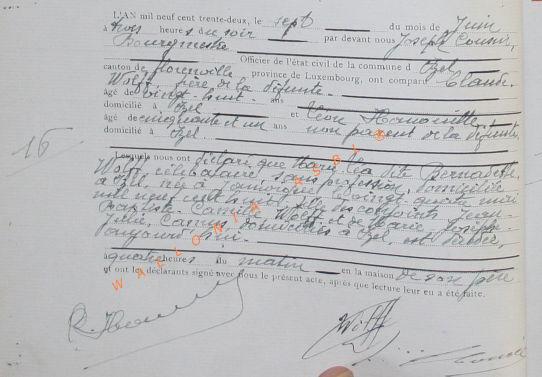 L'AN mil neuf cent trente-deux, le sept du mois de Juin
à trois heures du soir par devant nous Joseph
Bourgmestre Officier de l'état civil de la commune d Izel
canton de Florenville province de Luxembourg, ont comparu Claude
Wolff, frère de la défunte
âgé de vingt huit ans
domicilié à Izel et Léon
âgé de cinquante et un ans non parent de la défunte
domicilié à Izel.
16
Lesquels nous ont déclaré que Marie Léa dite Bernadette
Wolff, célibataire, sans profession, domiciliée
à Izel, née à le vingt quatre mai
mil neuf cent huit, des conjoints Jean-
Baptiste Camille Wolff et de Marie Joseph-
Julie, domiciliés à Izel, est décédée
aujourd'hui
à quatre heures du matin en la maison de son père
et ont les déclarants signé avec nous le présent acte, après que lecture leur en a été faite.
WALLONIA ASBL ©
Wolff